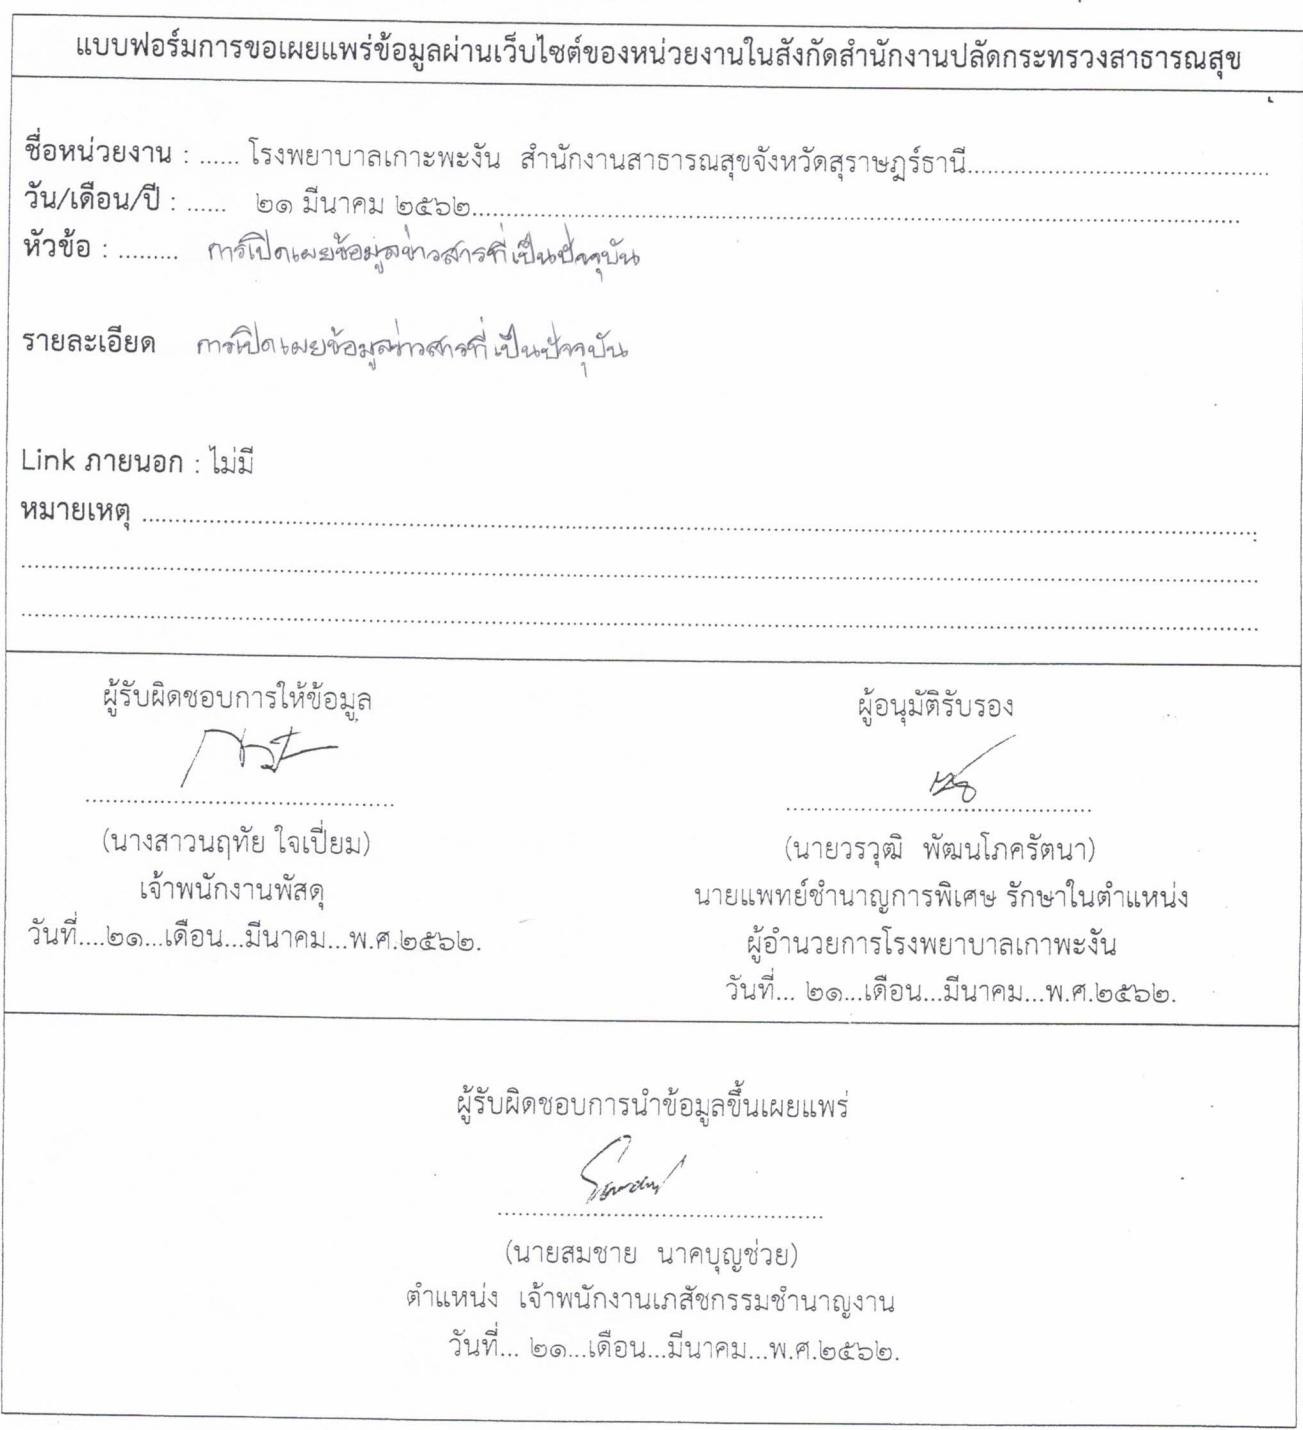 แบบฟอร์มการขอเผยแพร่ข้อมูลผ่านเว็บไซต์ของหน่วยงานในสังกัดสำนักงานปลัดกระทรวงสาธารณสุข
ชื่อหน่วยงาน : ...... โรงพยาบาลเกาะพะงัน สำนักงานสาธารณสุขจังหวัดสุราษฎร์ธานี..............................................
วัน/เดือน/ปี : ...... ๒๑ มีนาคม ๒๕๖๒......................................................................................................................
หัวข้อ : ......... การเปิดเผยข้อมูลข่าวสารที่เป็นปัจจุบัน
รายละเอียด การเปิดเผยข้อมูลข่าวสารที่เป็นปัจจุบัน
Link ภายนอก : ไม่มี
หมายเหตุ ..............................................................................................................................
ผู้รับผิดชอบการให้ข้อมูล
(นางสาวนฤทัย ใจเปี่ยม)
เจ้าพนักงานพัสดุ
วันที่....๒๑...เดือน...มีนาคม...พ.ศ.๒๕๖๒.
ผู้อนุมัติรับรอง
(นายวรวุฒิ พัฒนโภครัตนา)
นายแพทย์ชำนาญการพิเศษ รักษาในตำแหน่ง
ผู้อำนวยการโรงพยาบาลเกาพะงัน
วันที่... ๒๑...เดือน...มีนาคม...พ.ศ.๒๕๖๒.
ผู้รับผิดชอบการนำข้อมูลขึ้นเผยแพร่
(นายสมชาย นาคบุญช่วย)
ตำแหน่ง เจ้าพนักงานเภสัชกรรมชำนาญงาน
วันที่... ๒๑...เดือน...มีนาคม...พ.ศ.๒๕๖๒.